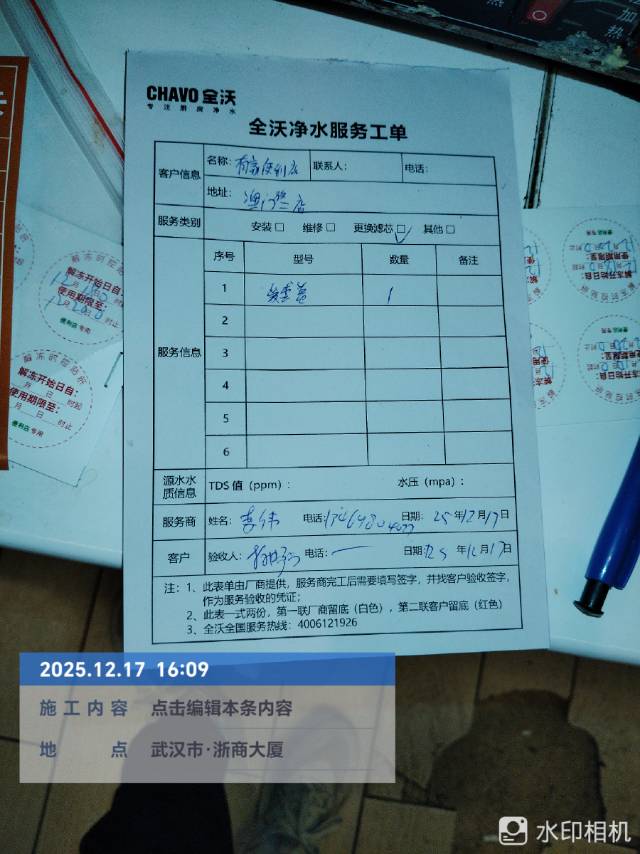 CHAVO 全沃
专注厨房净水
全沃净水服务工单
客户信息
名称: 有家便利店
联系人:
电话:
地址: 澳门路店
服务类别
安装□ 维修□ 更换滤芯□ 其他□
服务信息
序号 型号 数量 备注
1 1
2
3
4
5
6
源水水质信息
TDS 值（ppm）: 水压（mpa）:
服务商 姓名: 李伟 电话: 日期: 25 年12月17日
客户 验收人: 电话: 一 日期: 25 年12月17日
注: 1、此表单由厂商提供，服务商完工后需要填写签字，并找客户验收签字，
作为服务验收的凭证；
2、此表一式两份，第一联厂商留底（白色），第二联客户留底（红色）
3、全沃全国服务热线: 4006121926
解冻开始日自:
使用期限至:
便利店 专用
解冻时控贴标
解冻开始日自:
月 日 时起
使用期限至:
月 日 时止
便利店 专用
加热
2025.12.17 16:09
施工内容 点击编辑本条内容
地点 武汉市·浙商大厦
水印相机